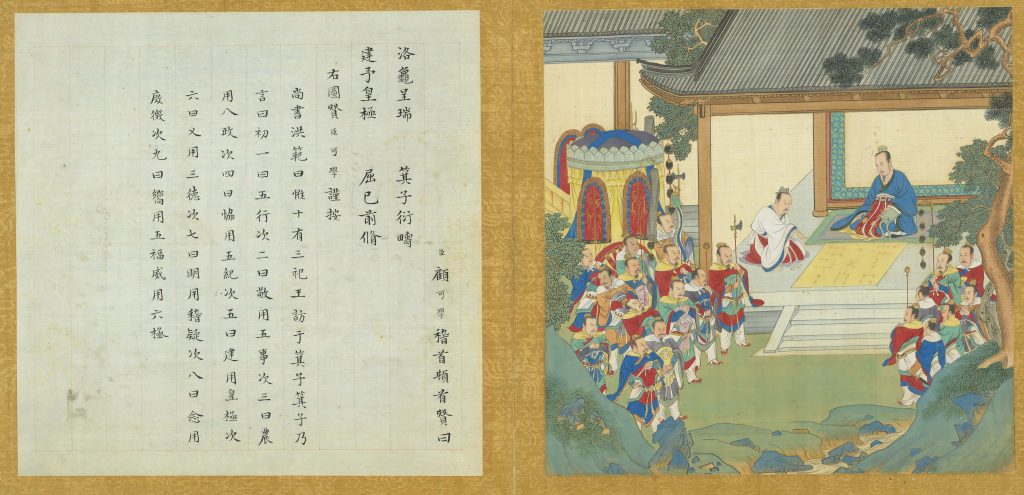 臣顧可學稽首頓首贊曰
洛龜呈瑞 箕子衍疇
建予皇極 屈已前脩
右圖贊臣可學謹按
尚書洪範曰惟十有三祀王訪于箕子箕子乃
言曰初一曰五行次二曰敬用五事次三曰農
用八政次四曰協用五紀次五曰建用皇極次
六曰乂用三德次七曰明用稽疑次八曰念用
庶徵次九曰嚮用五福威用六極